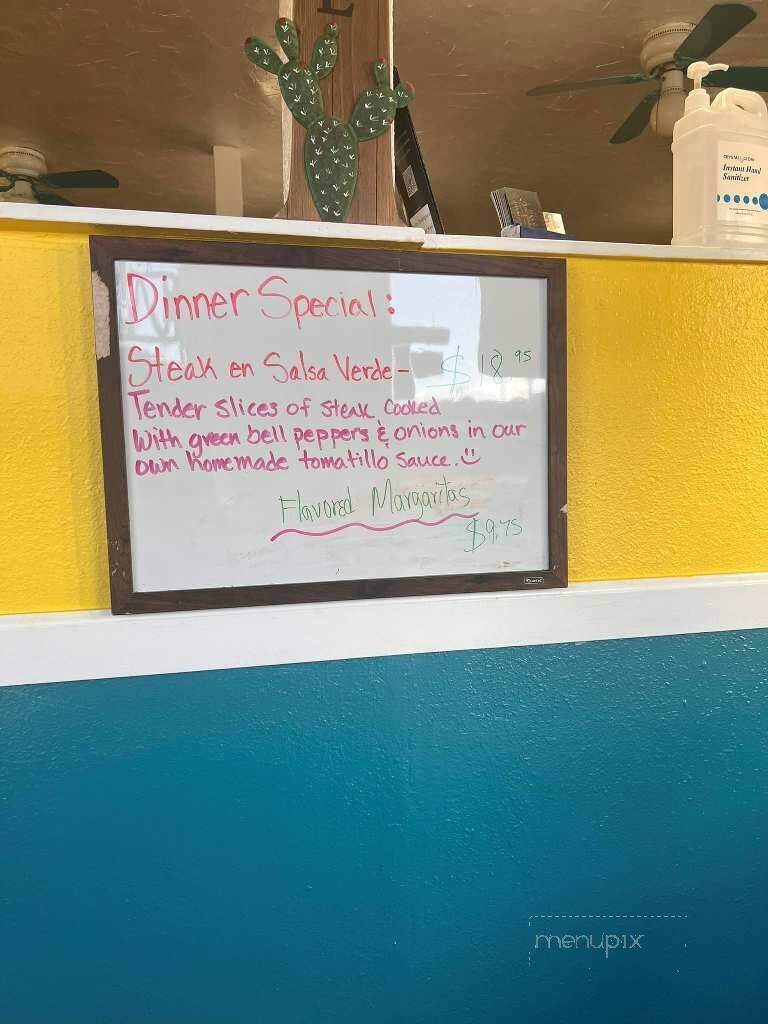 Dinner Special:
Steak en Salsa Verde- $18.95
Tender slices of steak cooked
With green bell peppers & onions in our
own homemade tomatillo sauce.
Flavored Margaritas
$9.75
Instant Hand
Sanitizer
menupix